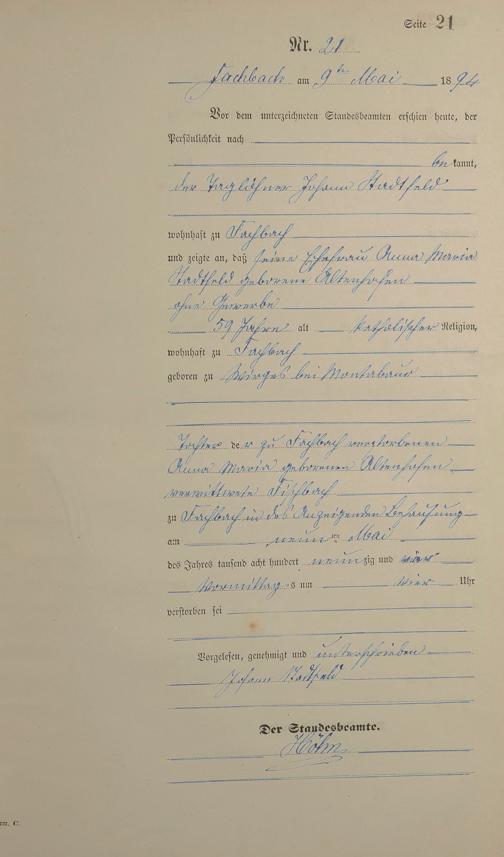 Seite 21
Nr. 21
Fachbach am 9ten Mai 1894
Vor dem unterzeichneten Standesbeamten erschien heute, der
Persönlichkeit nach
be kannt,
der Taglöhner Johann Stadtfeld
wohnhaft zu Fachbach
und zeigte an, daß seine Ehefrau Anna Maria
Stadtfeld geborene Altenhofen
ohne Gewerbe
59 Jahre alt katholischer Religion,
wohnhaft zu Fachbach
geboren zu Wirges bei Montabaur
Tochter der zu Fachbach verstorbenen
Anna Maria geborenen Altenhofen
verwittwete Fischbach
zu Fachbach in des Anzeigenden Behausung
am neunten Mai
des Jahres tausend acht hundert neunzig und vier
Vormittags um vier Uhr
verstorben sei
Vorgelesen, genehmigt und unterschrieben
Johann Stadtfeld
Der Standesbeamte.
Höhn
C.